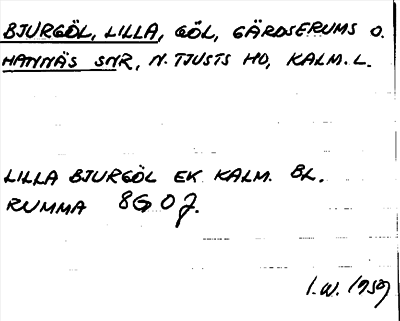 BJURGÖL, LILLA, GÖL, GÄRDSERUMS O.
HANNÄS SNR, N. TJUSTS HD, KALM. L.
LILLA BJURGÖL EK KALM. BL.
RUMMA 8G 0 J.
I.W. 1959